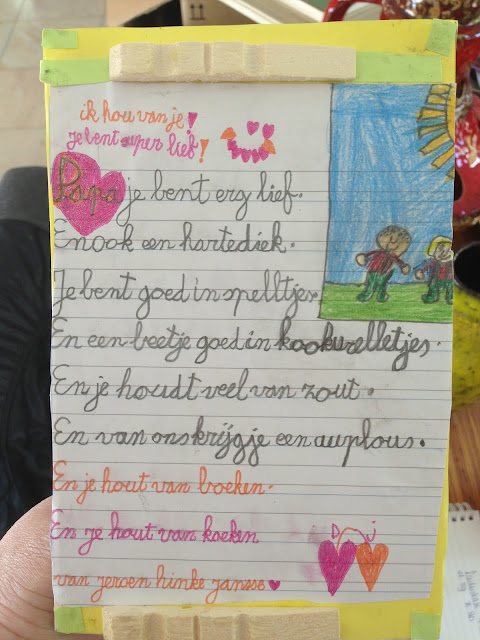 ik hou van je
je bent super lief!
Papa je bent erg lief.
En ook een hartediek.
Je bent goed in spelltjes.
En een beetje goed in kookurelletjes.
En je houdt veel van zout.
En van ons krijg je een auplous.
En je hout van boeken.
En je hout van koeken
D j
van jeroen hinke jansse